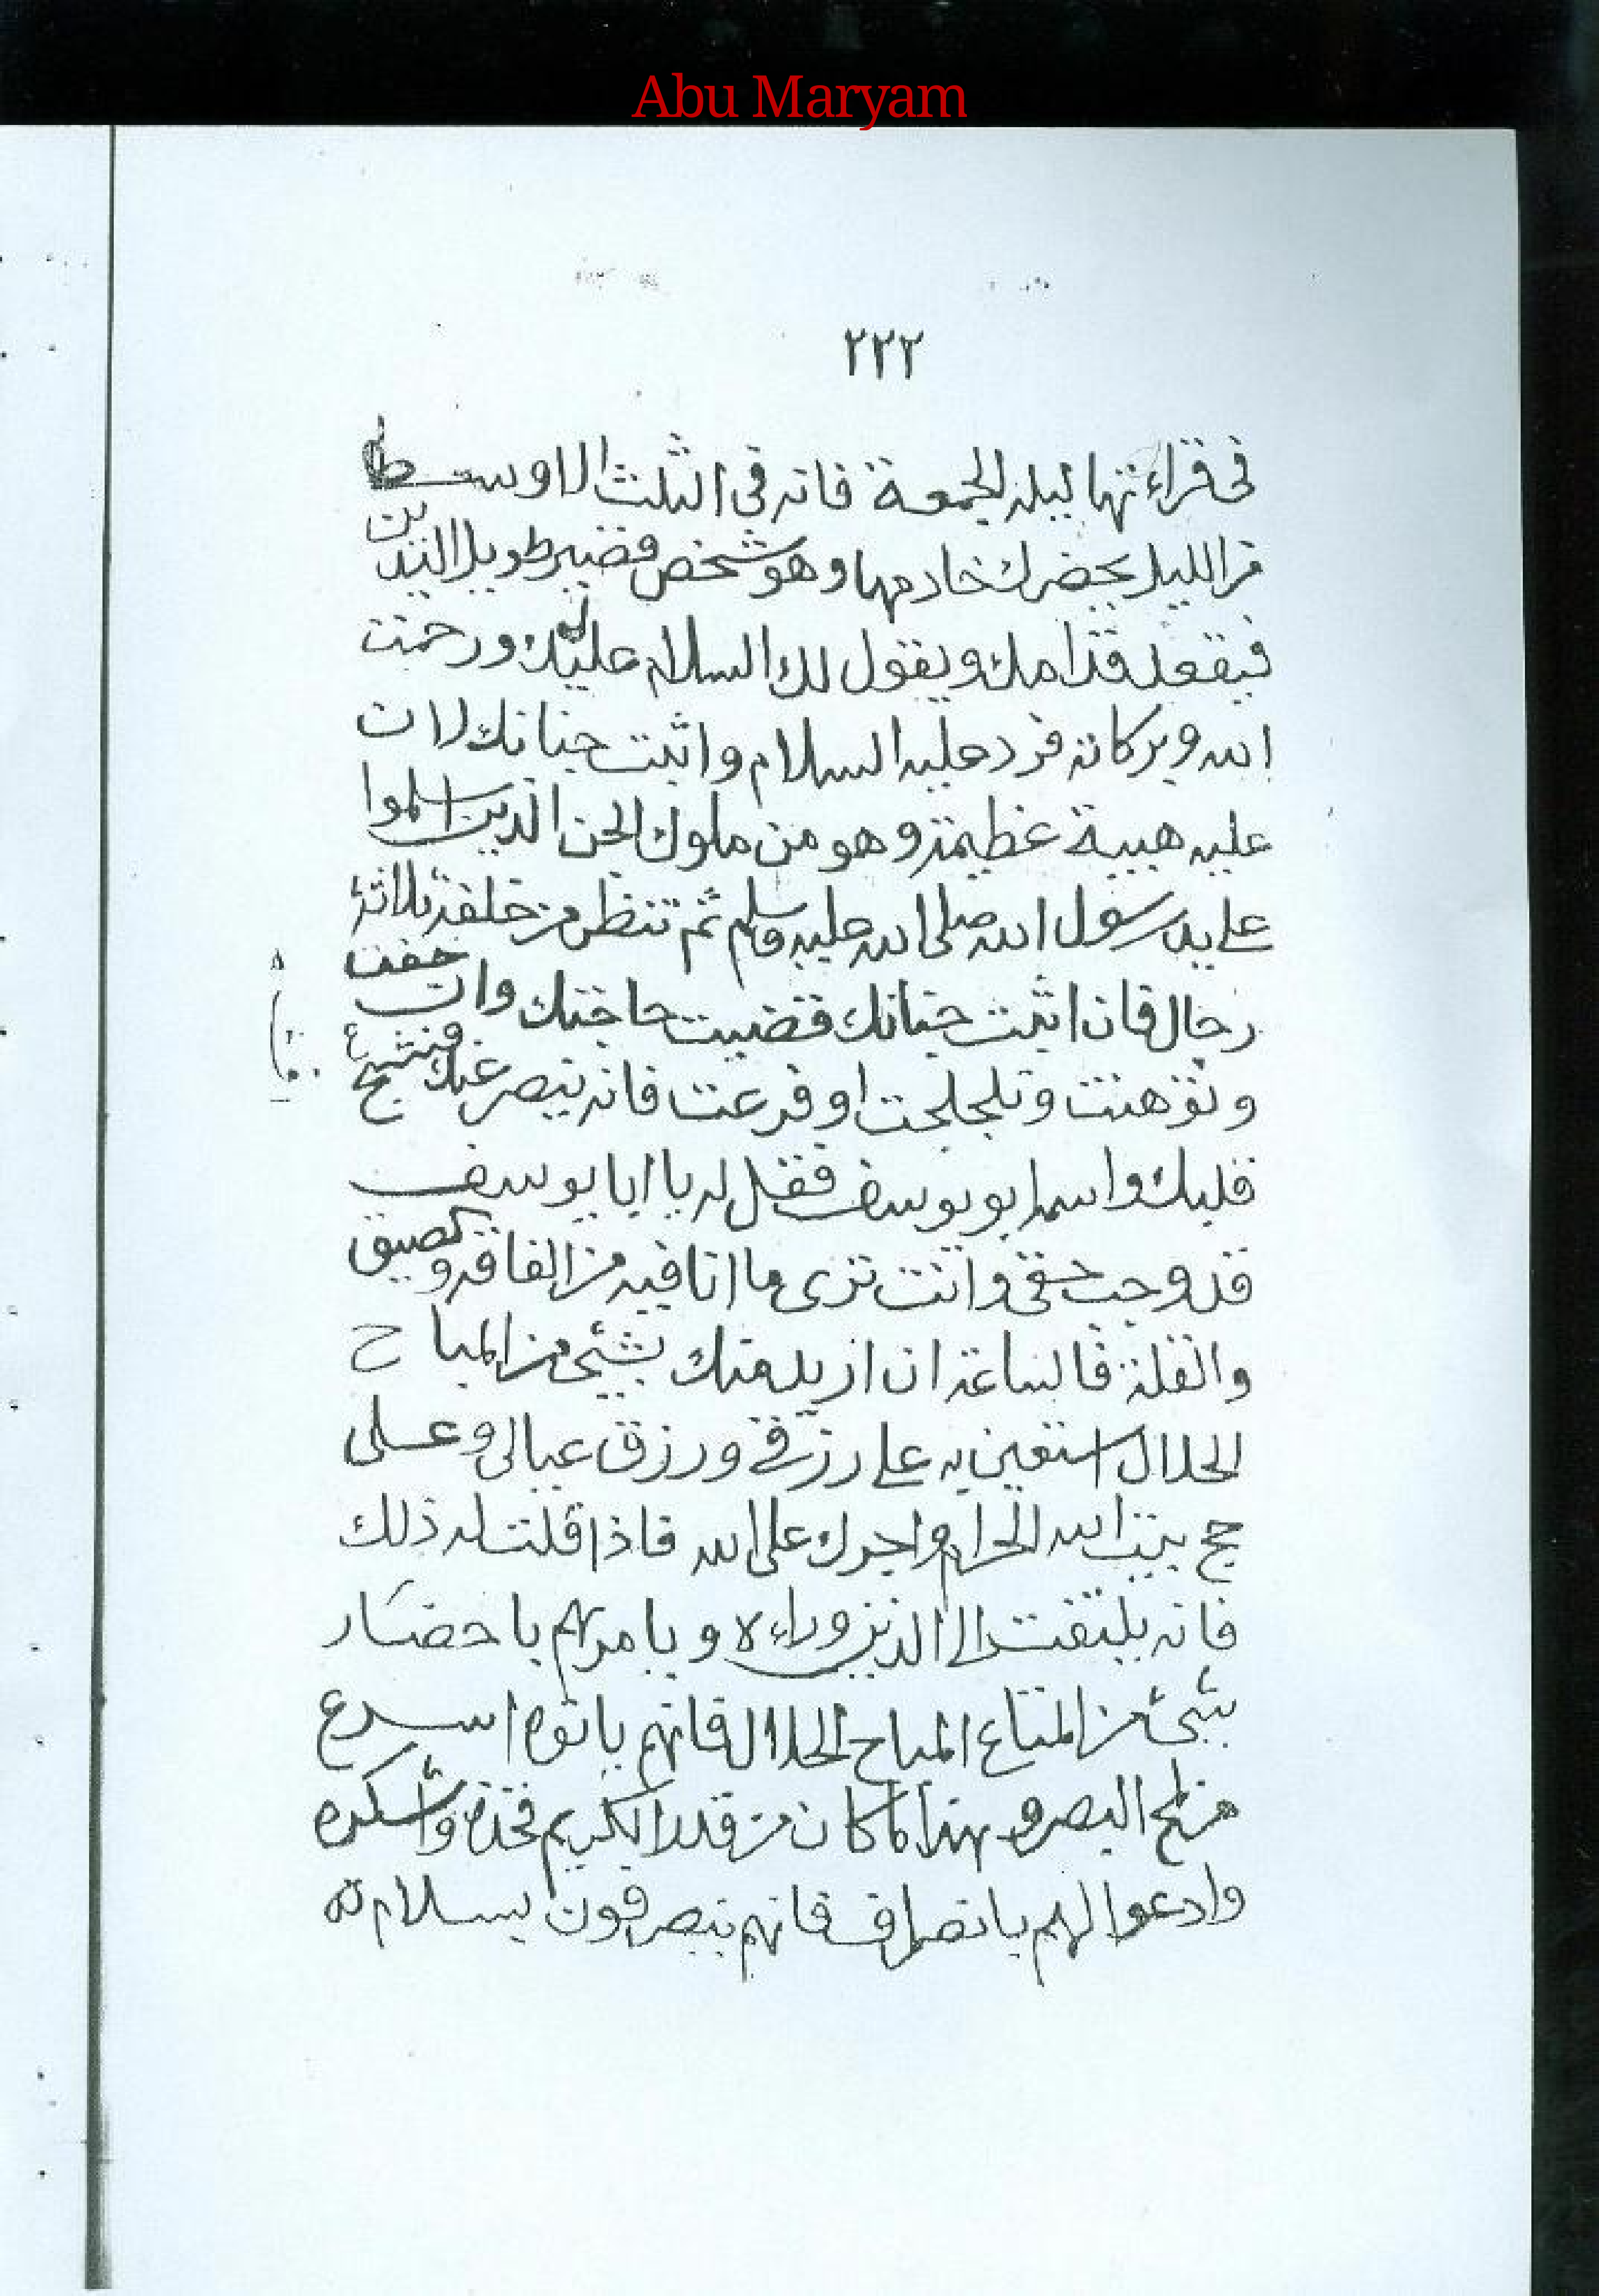 Abu Maryam
٢٢٢
في قراءتها ليلة الجمعة فانه في الثلث الاوسط
من الليل يحضرك خادمها وهو شخص قصير طويل اليدين
فيقعد قدامك ويقول لك السلام عليك ورحمت
الله وبركاته فرد عليه السلام واثبت جنانك لان
عليه هيبة عظيمة وهو من ملوك الجن الذين اسلموا
على يد رسول الله صلى الله عليه وسلم ثم تنظر من خلفه ثلاثة
رجال فان اثبت جنانك قضيت حاجتك وان خفت
وتوهنت وتلجلجت او فزعت فانه ينصر عنك
قلبك واسمه ابو يوسف فقل له يا ابا يوسف
قد وجب حقي وانت ترى ما انا فيه من الفاقة
والقلة فالساعة ان اريد منك بشيئ من المباح
الحلال استعين به على رزقي ورزق عيالي وعلى
حج بيت الله الحرام واجرك على الله فاذا قلت له ذلك
فانه يلتفت الى الذين وراءه ويامرهم باحضار
بشيئ من المتاع المباح الحلال فانهم ياتوه اسرع
من لمح البصر وبهذا ما كان من قدر الكريم فخذه واشكره
وادعوا لهم بانصراف فانهم ينصرفون بسلام ته